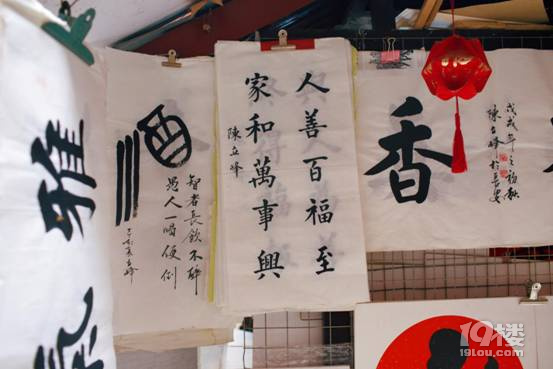 雅
酒
智者長飲不醉
愚人一喝便倒
人善百福至
家和萬事興
陳立峰
香
戊戌年之初秋
陳立峰於長安
19楼
19lou.com